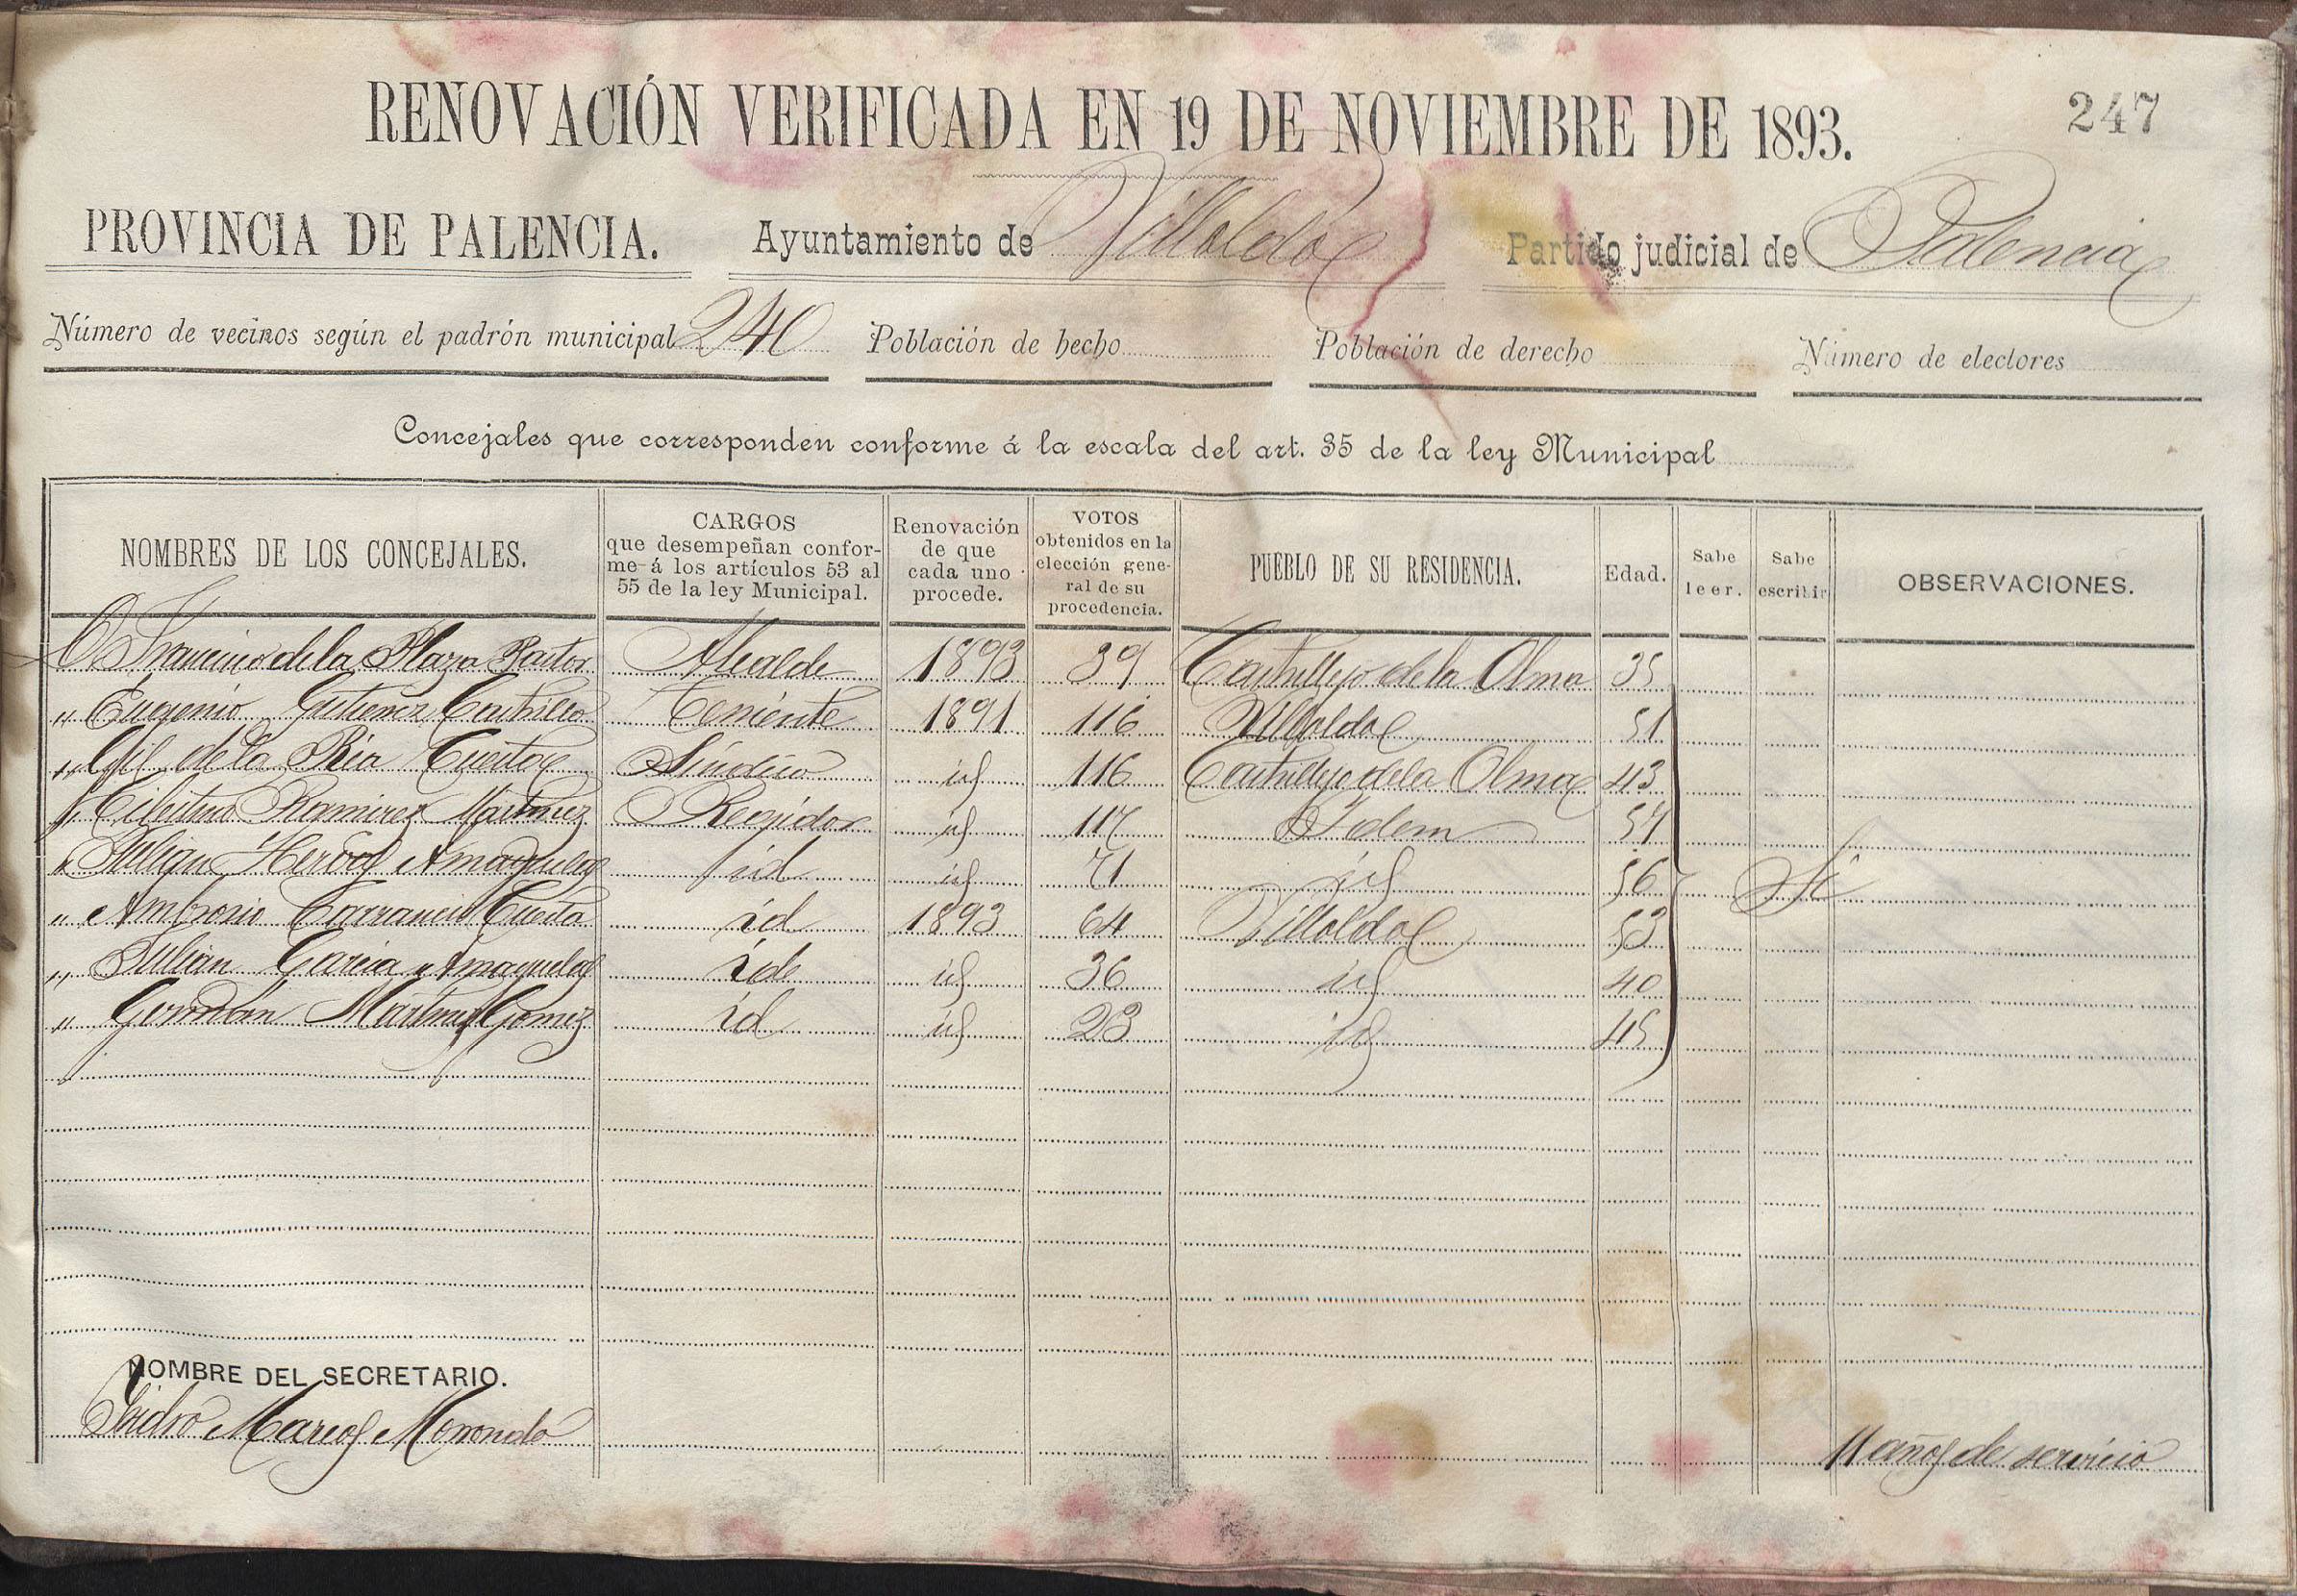 RENOVACIÓN VERIFICADA EN 19 DE NOVIEMBRE DE 1893.
247
PROVINCIA DE PALENCIA. Ayuntamiento de Villoldo Partido judicial de Palencia
Número de vecinos según el padrón municipal 240 Población de hecho Población de derecho Número de electores
Concejales que corresponden conforme á la escala del art. 35 de la ley Municipal
NOMBRES DE LOS CONCEJALES. CARGOS que desempeñan confor-me á los artículos 53 al 55 de la ley Municipal. Renovación de que cada uno procede. VOTOS obtenidos en la elección gene-ral de su procedencia. PUEBLO DE SU RESIDENCIA. Edad. Sabe leer. Sabe escribir OBSERVACIONES.
D. Francisco de la Plaza Pastor Alcalde 1893 39 Castrillejo de la Olma 35
" Eugenio Gutierrez Castrillo Teniente 1891 116 Villoldo 51
" Gil de la Ria Cuesta Síndico id 116 Castrillejo de la Olma 43
" Ramirez Martinez Regidor id 117 Idem 54
" Julian Herrog Amayuelas id id 71 id 56 Sí
" Ambrosio Carrancio Cuesta id 1893 64 Villoldo 53
" Julian Garcia Amayuelas id id 36 id 40
" Martinez Gomez id id 23 id 45
NOMBRE DEL SECRETARIO.
Isidro Marcos Merendo 11 años de servicio